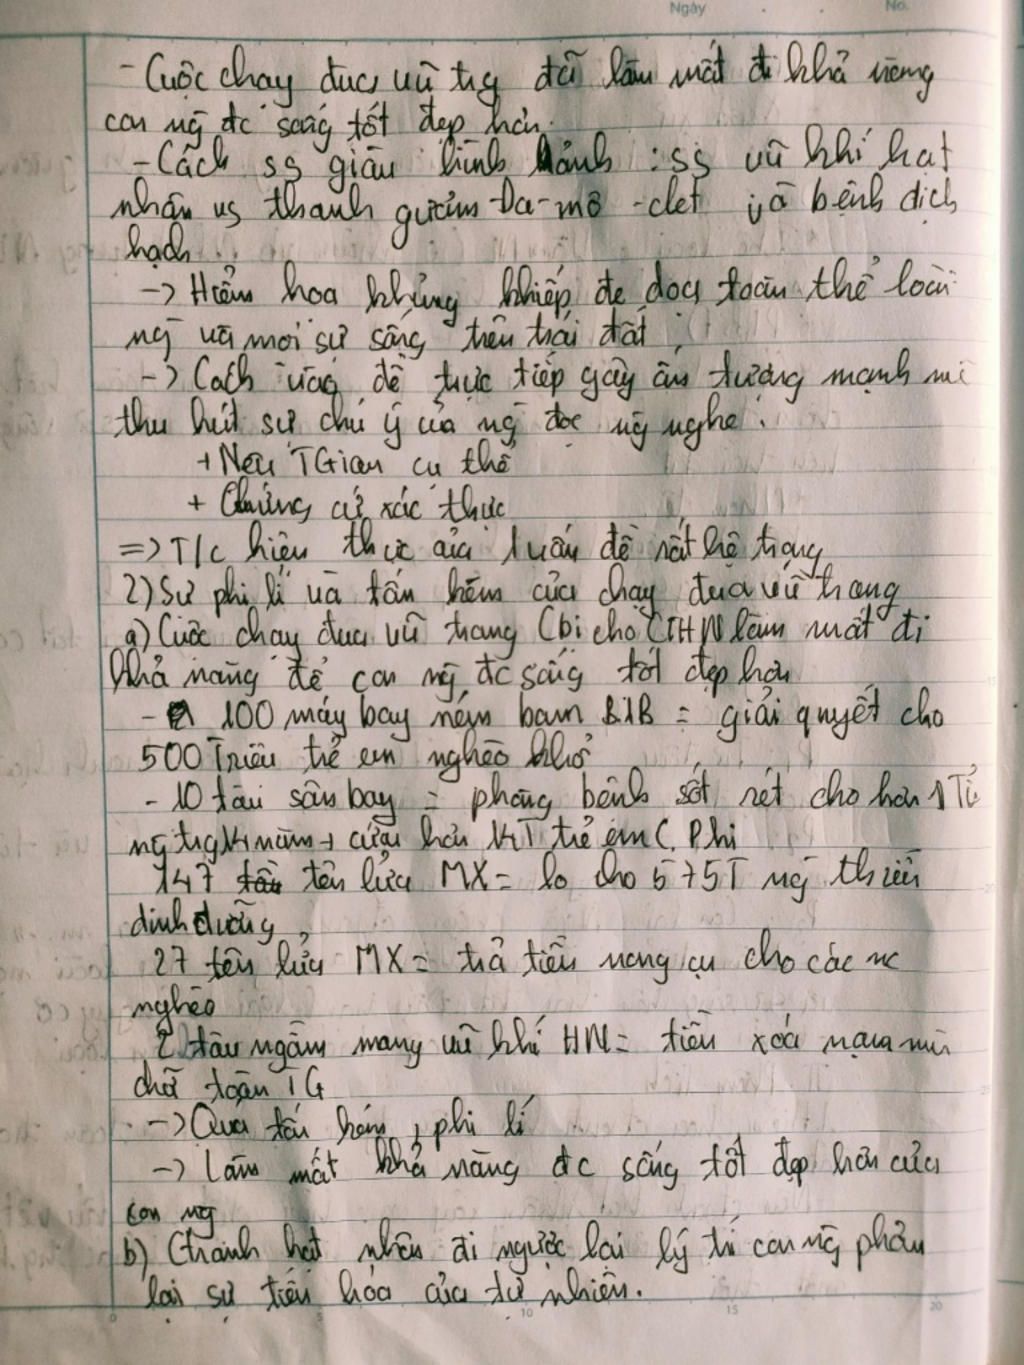 Ngày No.
- Cuộc chạy đua vũ trg đã làm mất đi khả năng
con ng đc sống tốt đẹp hơn.
- Cách ss giàu hình ảnh : ss vũ khí hạt
nhân vs thanh gươm Đa-mô-clet và bệnh dịch
hạch
-> Hiểm họa khủng khiếp đe dọa toàn thể loài
ng và mọi sự sống trên trái đất.
-> Cách vào đề trực tiếp gây ấn tượng mạnh mẽ
thu hút sự chú ý của ng đọc ng nghe.
+ Nêu TGian cụ thể
+ Chứng cứ xác thực
=> T/c hiện thực của luận đề rất hệ trọng
2) Sự phi lí và tốn kém của chạy đua vũ trang
a) Cuộc chạy đua vũ trang Cbị cho CTHN làm mất đi
khả năng để con ng đc sống tốt đẹp hơn
- 100 máy bay ném bom B1B = giải quyết cho
500 Triệu trẻ em nghèo khổ
- 10 tàu sân bay = phòng bệnh sốt rét cho hơn 1 Tỉ
ng trg 14 năm + cứu hơn 14T trẻ em C. Phi
147 tên lửa MX = lo cho 575T ng thiếu
dinh dưỡng,
27 tên lửa MX = trả tiền nông cụ cho các nc
nghèo
2 tàu ngầm mang vũ khí HN = tiền xóa nạn mù
chữ toàn TG
-> Quá tốn kém, phi lí
-> Làm mất khả năng đc sống tốt đẹp hơn của
con ng
b) Ctranh hạt nhân đi ngược lại lý trí con ng phản
lại sự tiến hóa của tự nhiên.
0 5 10 15 20